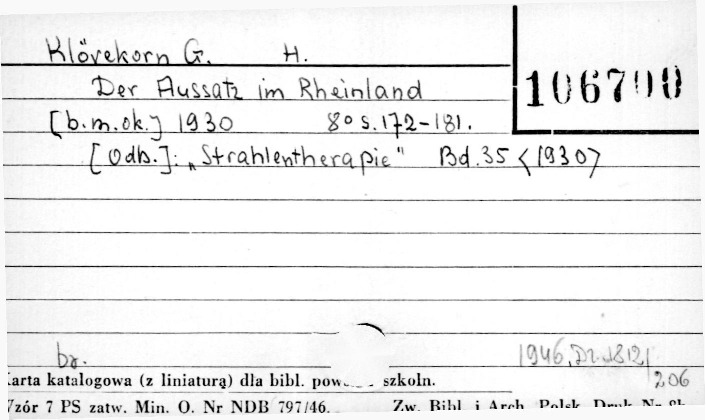 Klövekorn G. H.
106700
Der Aussatz im Rheinland
[b.m.ok.] 1930 8° s.172-181.
[Odb.]: „Strahlentherapie" Bd.35 <1930>
br.
1946, Dr.
206
Karta katalogowa (z liniaturą) dla bibl. szkoln.
Wzór 7 PS zatw. Min. O. Nr NDB 797/46. Zw. Bibl. i Arch. Polsk. Druk Nr